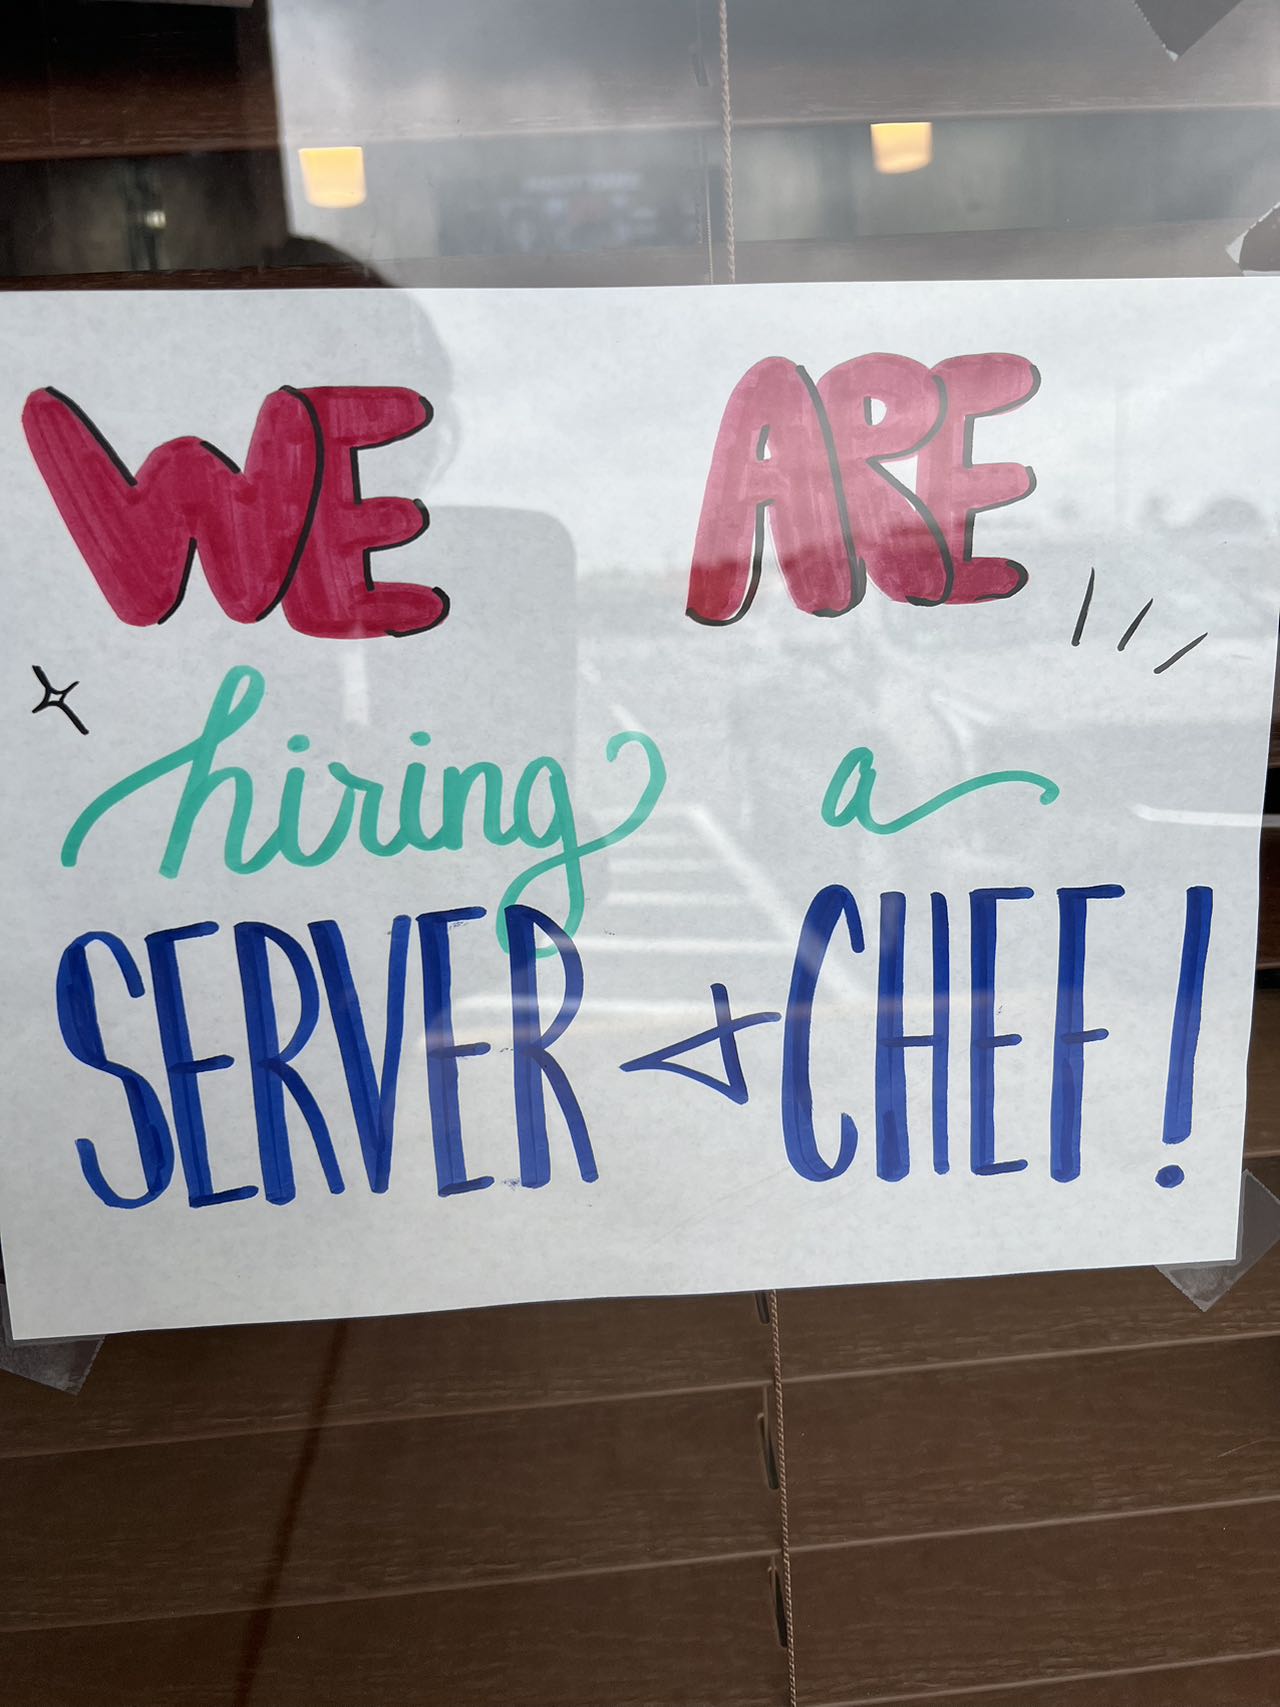 WE ARE
hiring a
SERVER & CHEF!